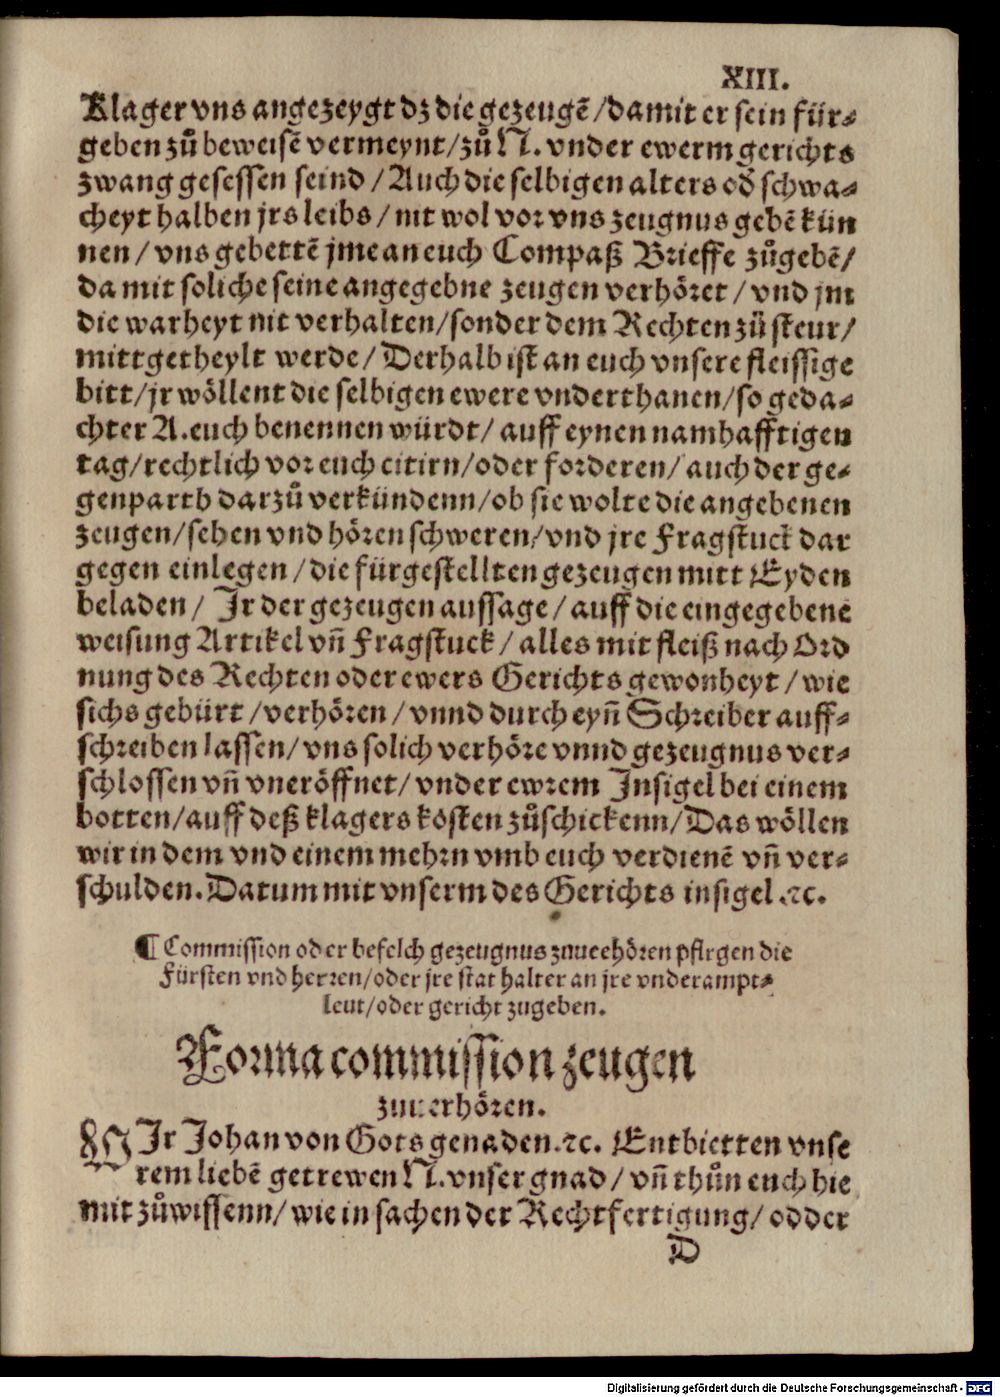 XIII.
Klager vns angezeygt dz die gezeugē /damit er sein für⸗
geben zů beweisē vermeynt/zů N. vnder ewerm gerichts
zwang gesessen seind /Auch die selbigen alters od̕ schwa⸗
cheyt halben jrs leibs / nit wol vor vns zeugnus gebē kün
nen/ vns gebettē jme an euch Compaß Brieffe zůgebē/
da mit soliche seine angegebne zeugen verhöret / vnd jm
die warheyt nit verhalten/sonder dem Rechten zů steur/
mittgetheylt werde/ Derhalb ist an euch vnsere fleissige
bitt/jr wöllent die selbigen ewere vnderthanen/so geda⸗
chter A.euch benennen würdt/ auff eynen namhafftigen
tag/rechtlich vor euch citirn/oder forderen/ auch der ge⸗
genparth darzů verkündenn/ob sie wolte die angebenen
zeugen/sehen vnd hören schweren/vnd jre Fragstuck dar
gegen einlegen /die fürgestellten gezeugen mitt Eyden
beladen/ Jr der gezeugen aussage/ auff die eingegebene
weisung Artikel vñ Fragstuck/ alles mit fleiß nach Ord
nung des Rechten oder ewers Gerichts gewonheyt /wie
sichs gebürt /verhören /vnnd durch eyñ Schreiber auff⸗
schreiben lassen/vns solich verhöre vnnd gezeugnus ver⸗
schlossen vñ vneröffnet/ vnder ewrem Insigel bei einem
botten/auff deß klagers kosten zůschickenn/Das wöllen
wir in dem vnd einem mehrn vmb euch verdienē vñ ver⸗
schulden.Datum mit vnserm des Gerichts insigel.⁊c.
¶ Commission oder befelch gezeugnus zuueehören pflrgen die
Fürsten vnd herren/oder jre stat halter an jre vnderampt⸗
leut/oder gericht zugeben.
Forma commission zeugen
zuuerhören.
WIr Johan von Gots genaden.⁊c. Entbietten vnse
rem liebē getrewen N.vnser gnad/ vñ thůn euch hie
mit zůwissenn/ wie in sachen der Rechtfertigung/ odder
D
Digitalisierung gefördert durch die Deutsche Forschungsgemeinschaft - DFG